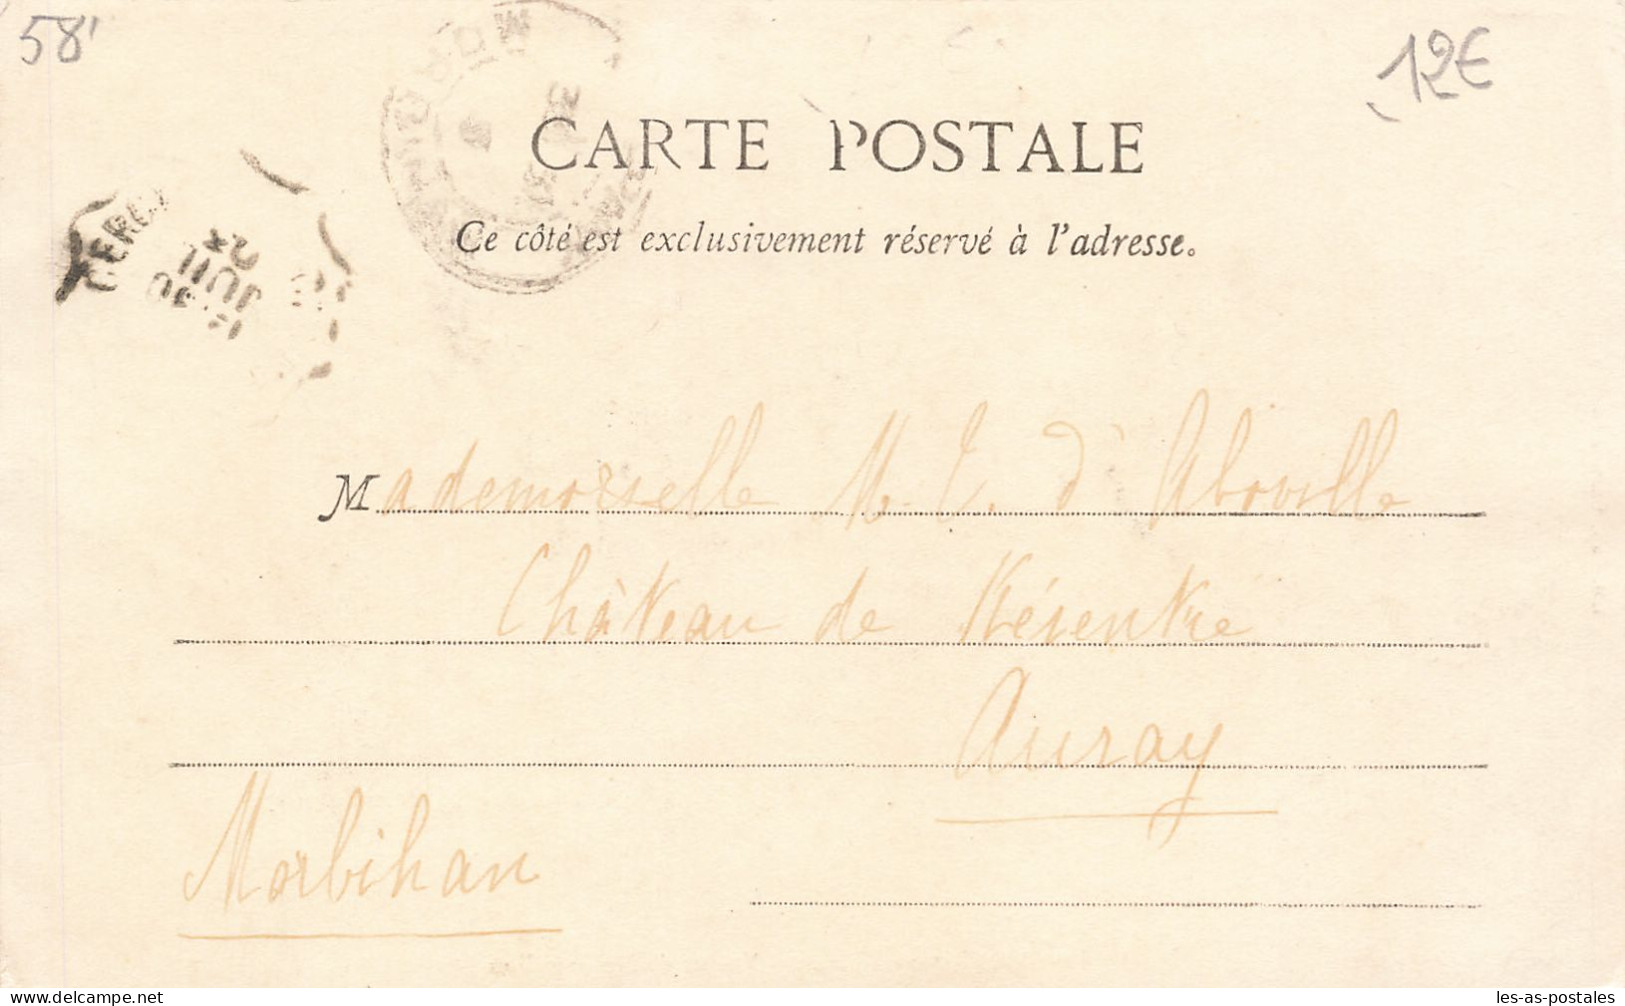 58'
12€
CARTE POSTALE
Ce côté est exclusivement réservé à l'adresse.
CERCY
2E
JUIL
Mademoiselle M. C. d'Aboville
Château de Kérentré
Auray
Morbihan
les-as-postales